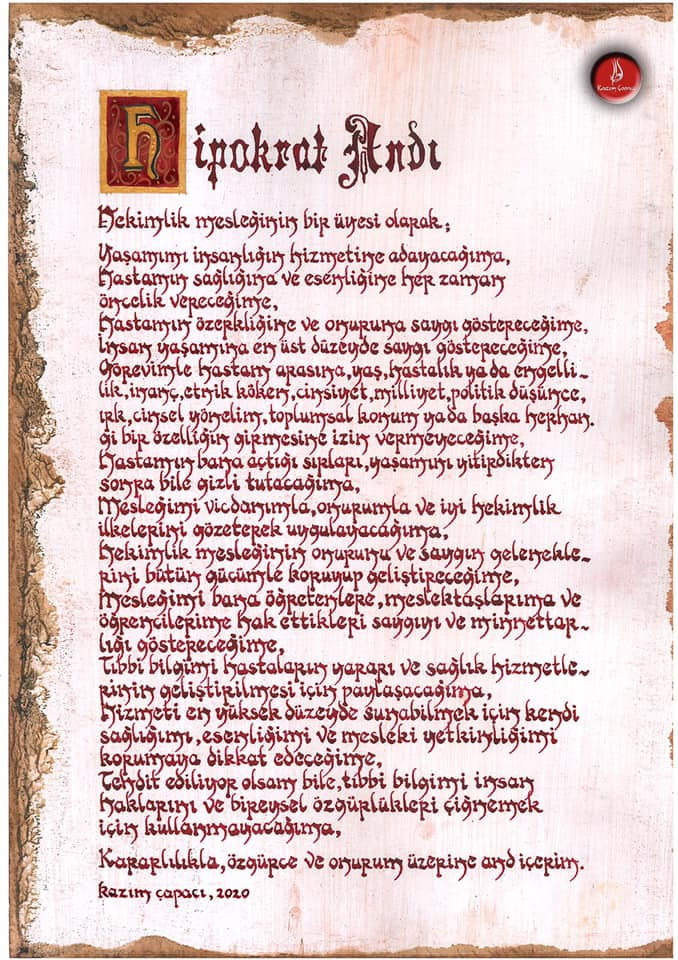 Kazım Çapacı
Hipokrat Andı
Hekimlik mesleğinin bir üyesi olarak;
Yaşamımı insanlığın hizmetine adayacağıma,
Hastamın sağlığına ve esenliğine her zaman
öncelik vereceğime,
Hastamın özerkliğine ve onuruna saygı göstereceğime,
İnsan yaşamına en üst düzeyde saygı göstereceğime,
Görevimle hastam arasına, yaş, hastalık ya da engelli-
lik, inanç, etnik köken, cinsiyet, milliyet, politik düşünce,
ırk, cinsel yönelim, toplumsal konum ya da başka herhan-
gi bir özelliğin girmesine izin vermeyeceğime,
Hastamın bana açtığı sırları, yaşamını yitirdikten
sonra bile gizli tutacağıma,
Mesleğimi vicdanımla, onurumla ve iyi hekimlik
ilkelerini gözeterek uygulayacağıma,
Hekimlik mesleğinin onurunu ve saygın gelenekle-
rini bütün gücümle koruyup geliştireceğime,
Mesleğimi bana öğretenlere, meslektaşlarıma ve
öğrencilerime hak ettikleri saygıyı ve minnettar-
lığı göstereceğime,
Tıbbi bilgimi hastaların yararı ve sağlık hizmetle-
rinin geliştirilmesi için paylaşacağıma,
Hizmeti en yüksek düzeyde sunabilmek için kendi
sağlığımı, esenliğimi ve mesleki yetkinliğimi
korumaya dikkat edeceğime,
Tehdit ediliyor olsam bile, tıbbi bilgimi insan
haklarını ve bireysel özgürlükleri çiğnemek
için kullanmayacağıma,
Kararlılıkla, özgürce ve onurum üzerine and içerim.
Kazım Çapacı, 2020